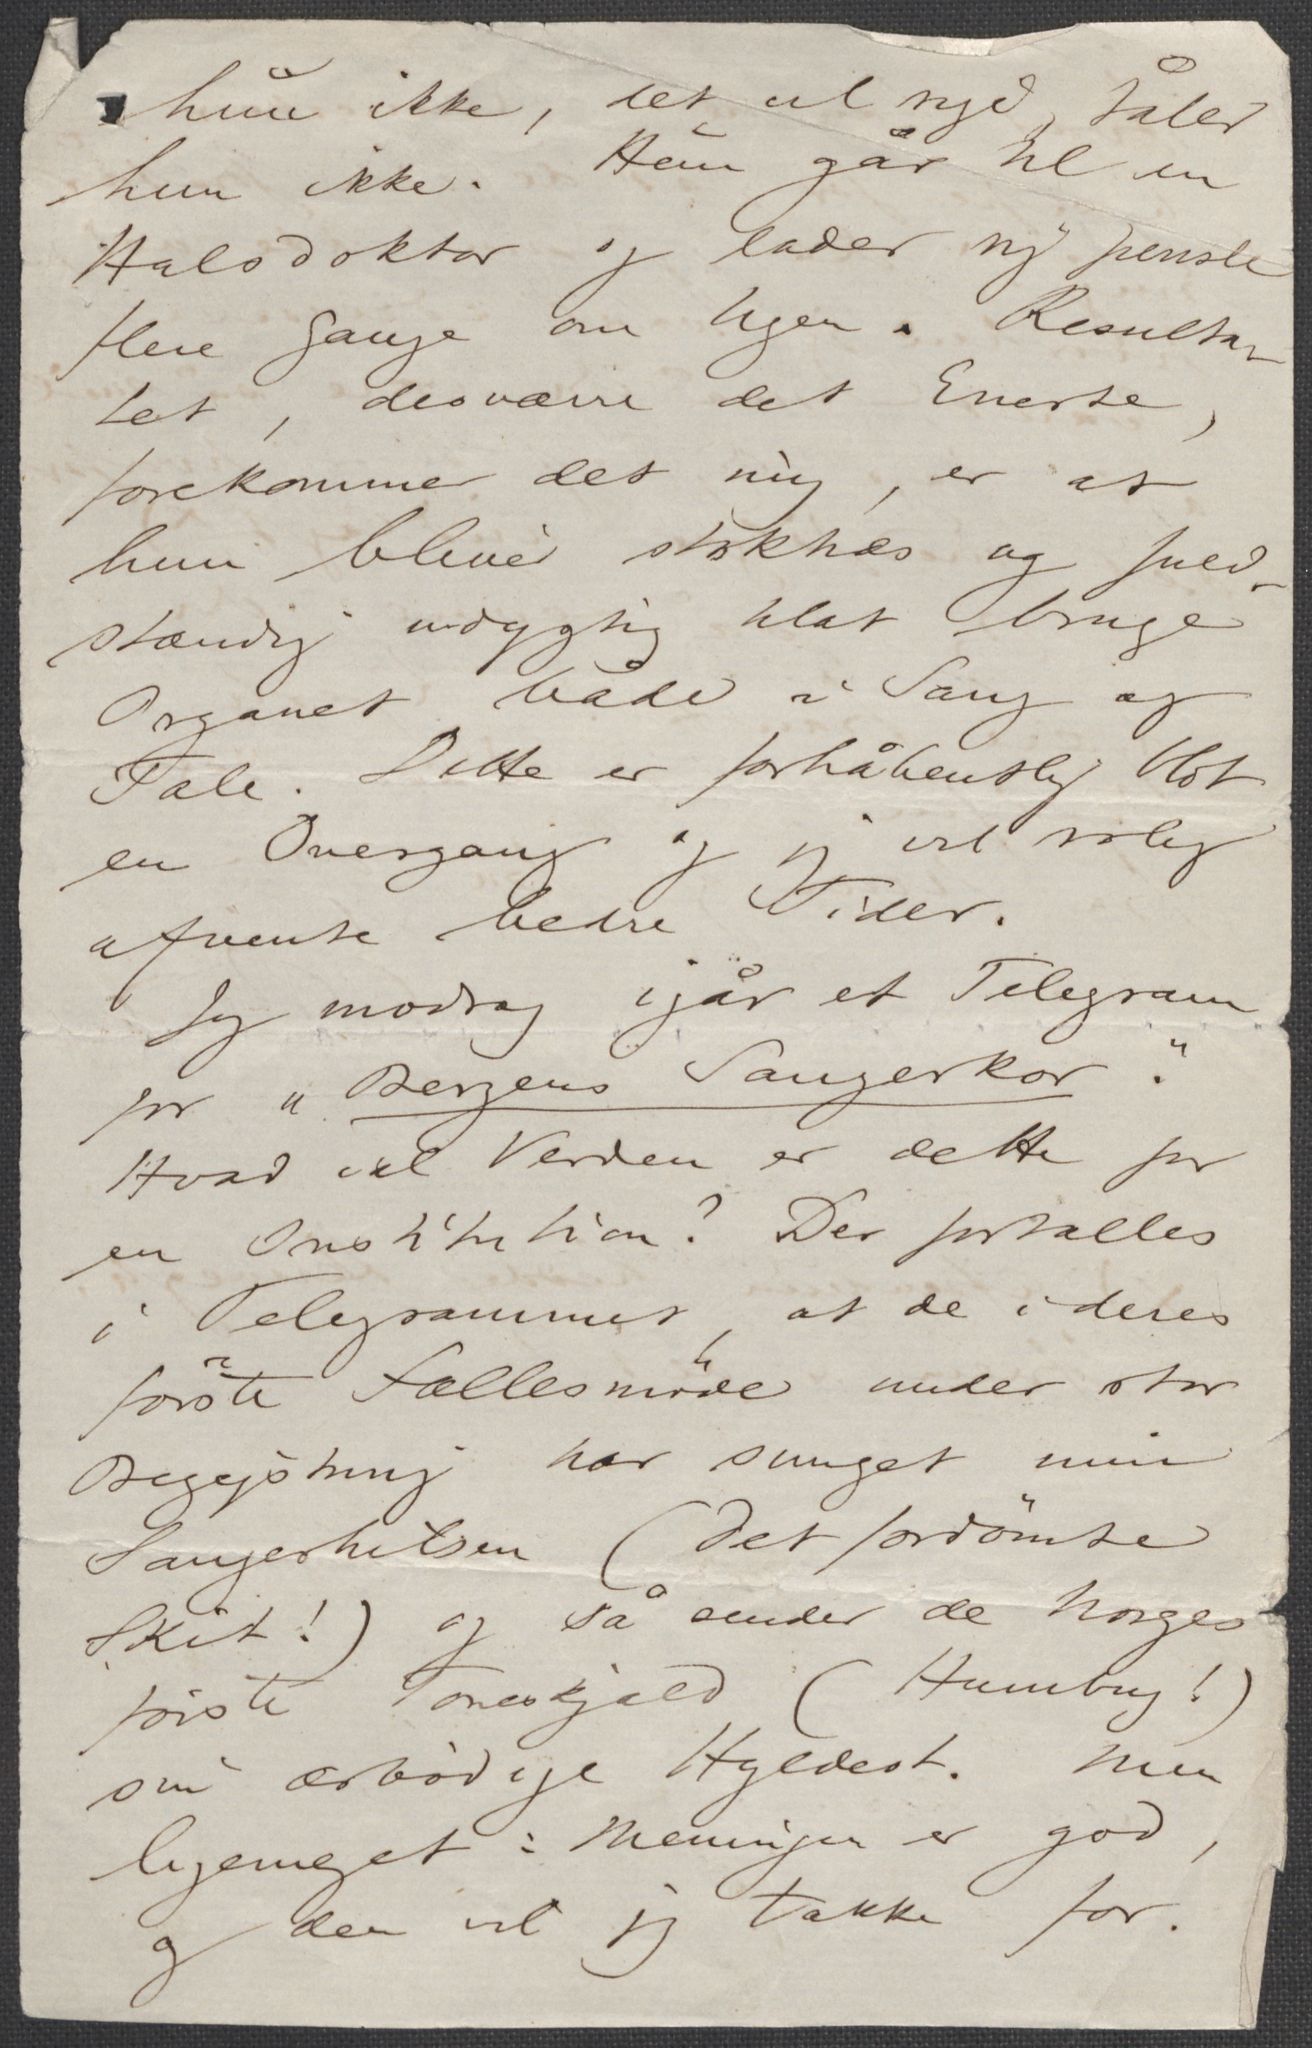 hun ikke, det vil sige, tåler
hun ikke. Hun går til en
Halsdoktor og lader sig pensle
flere Gange om Ugen. Resulta-
tet, desværre det Eneste,
forekommer det mig, er at
hun bliver stokhæs og fuld-
stændig udygtig til at bruge
Organet både i Sang og
Tale. Dette er forhåbentlig blot
en Overgang og jeg vil rolig
afvente bedre Tider.
Jeg modtog igår et Telegram
fra „Bergens Sangerkor“.
Hvad i al Verden er dette for
en Institution? Der fortælles
i Telegrammet, at de i deres
første Fællesmøde under stor
Begejstring har sunget min
Sangerhilsen (det fordömte
Skit!) og så sender de Norges
første Toneskjald (Humbug!)
sin ærbødige Hyldest. Men
ligemeget: Meningen er god,
og den vil jeg takke for.